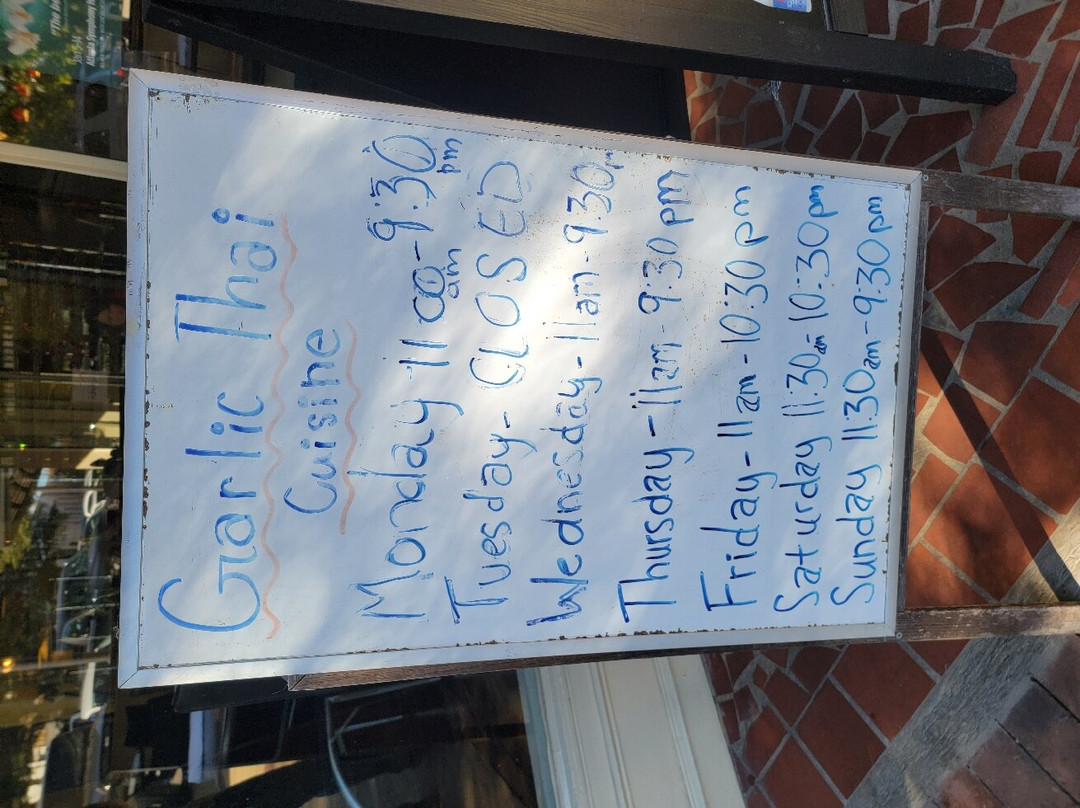 Garlic Thai
Cuisine
Monday 11:00am - 9:30pm
Tuesday - CLOSED
Wednesday - 11am - 9:30
Thursday - 11am - 9:30pm
Friday - 11am - 10:30pm
Saturday 11:30am - 10:30pm
Sunday 11:30am - 9:30pm